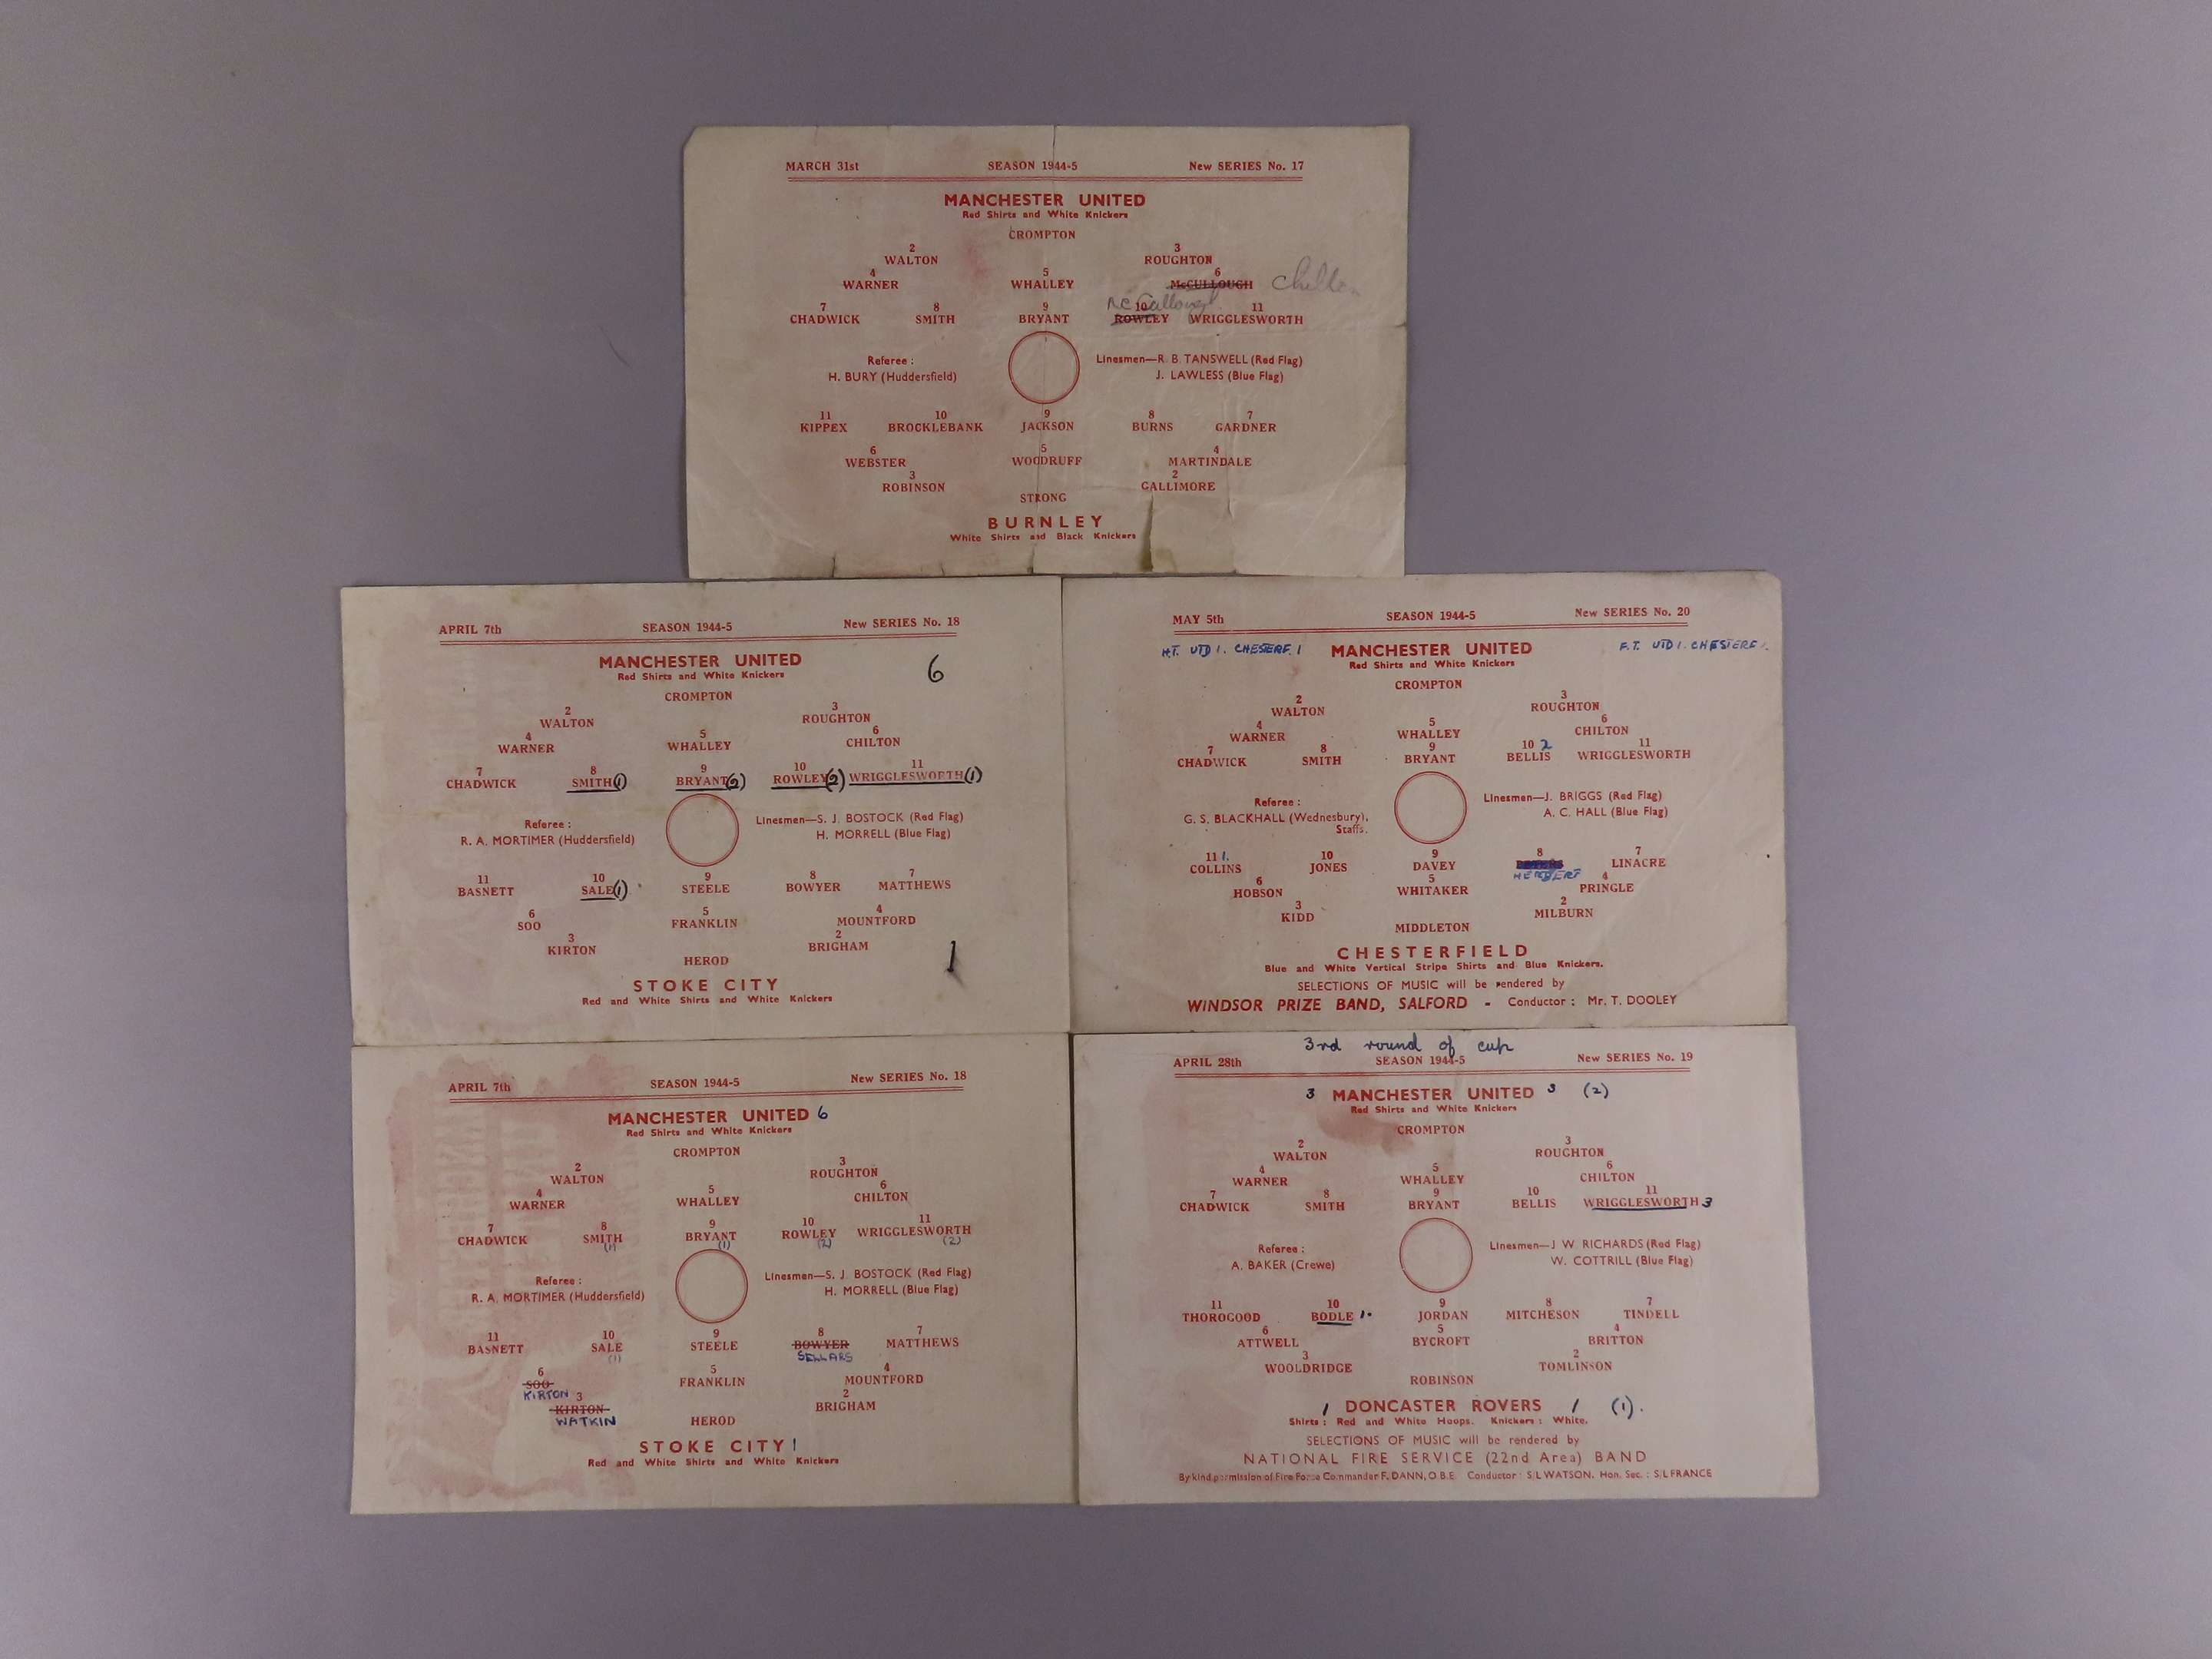 MARCH 31st SEASON 1944-5 New SERIES No. 17
MANCHESTER UNITED
Red Shirts and White Knickers
CROMPTON
2 3
WALTON ROUGHTON
4 5 6
WARNER WHALLEY McCULLOUGH
7 8 9 10 11
CHADWICK SMITH BRYANT ROWLEY WRIGGLESWORTH
Referee : Linesmen—R. B. TANSWELL (Red Flag)
H. BURY (Huddersfield) J. LAWLESS (Blue Flag)
11 10 9 8 7
KIPPEX BROCKLEBANK JACKSON BURNS GARDNER
6 5 4
WEBSTER WOODRUFF MARTINDALE
3 2
ROBINSON GALLIMORE
STRONG
BURNLEY
White Shirts and Black Knickers
APRIL 7th SEASON 1944-5 New SERIES No. 18
MANCHESTER UNITED 6
Red Shirts and White Knickers
CROMPTON
2 3
WALTON ROUGHTON
4 5 6
WARNER WHALLEY CHILTON
7 8 9 10 11
CHADWICK SMITH (1) BRYANT (2) ROWLEY (2) WRIGGLESWORTH (1)
Referee : Linesmen—S. J. BOSTOCK (Red Flag)
R. A. MORTIMER (Huddersfield) H. MORRELL (Blue Flag)
11 10 9 8 7
BASNETT SALE (1) STEELE BOWYER MATTHEWS
6 5 4
SOO FRANKLIN MOUNTFORD
3 2
KIRTON BRIGHAM
HEROD 1
STOKE CITY
Red and White Shirts and White Knickers
MAY 5th SEASON 1944-5 New SERIES No. 20
H.T. UTD 1. CHESTERF. 1 MANCHESTER UNITED F.T. UTD 1. CHESTERF 1.
Red Shirts and White Knickers
CROMPTON
2 3
WALTON ROUGHTON
4 5 6
WARNER WHALLEY CHILTON
7 8 9 10 2 11
CHADWICK SMITH BRYANT BELLIS WRIGGLESWORTH
Referee : Linesmen—J. BRIGGS (Red Flag)
G. S. BLACKHALL (Wednesbury), A. C. HALL (Blue Flag)
Staffs.
11 1. 10 9 8 7
COLLINS JONES DAVEY LINACRE
HERBERT
6 5 4
HOBSON WHITAKER PRINGLE
3 2
KIDD MILBURN
MIDDLETON
CHESTERFIELD
Blue and White Vertical Stripe Shirts and Blue Knickers.
SELECTIONS OF MUSIC will be rendered by
WINDSOR PRIZE BAND, SALFORD - Conductor : Mr. T. DOOLEY
APRIL 7th SEASON 1944-5 New SERIES No. 18
MANCHESTER UNITED 6
Red Shirts and White Knickers
CROMPTON
2 3
WALTON ROUGHTON
4 5 6
WARNER WHALLEY CHILTON
7 8 9 10 11
CHADWICK SMITH BRYANT ROWLEY WRIGGLESWORTH
(1) (1) (2) (2)
Referee : Linesmen—S. J. BOSTOCK (Red Flag)
R. A. MORTIMER (Huddersfield) H. MORRELL (Blue Flag)
11 10 9 8 7
BASNETT SALE STEELE BOWYER MATTHEWS
(1) SELLARS
6 5 4
SOO FRANKLIN MOUNTFORD
KIRTON 3 2
KIRTON BRIGHAM
WATKIN HEROD
STOKE CITY 1
Red and White Shirts and White Knickers
3rd round of cup
APRIL 28th SEASON 1944-5 New SERIES No. 19
3 MANCHESTER UNITED 3 (2)
Red Shirts and White Knickers
CROMPTON
2 3
WALTON ROUGHTON
4 5 6
WARNER WHALLEY CHILTON
7 8 9 10 11
CHADWICK SMITH BRYANT BELLIS WRIGGLESWORTH 3
Referee : Linesmen—J. W. RICHARDS (Red Flag)
A. BAKER (Crewe) W. COTTRILL (Blue Flag)
11 10 9 8 7
THOROGOOD BODLE 1. JORDAN MITCHESON TINDELL
6 5 4
ATTWELL BYCROFT BRITTON
3 2
WOOLDRIDGE TOMLINSON
ROBINSON
1 DONCASTER ROVERS 1 (1).
Shirts : Red and White Hoops. Knickers : White.
SELECTIONS OF MUSIC will be rendered by
NATIONAL FIRE SERVICE (22nd Area) BAND
By kind permission of Fire Force Commander F. DANN, O.B.E. Conductor : S/L WATSON, Hon. Sec. : S/L FRANCE